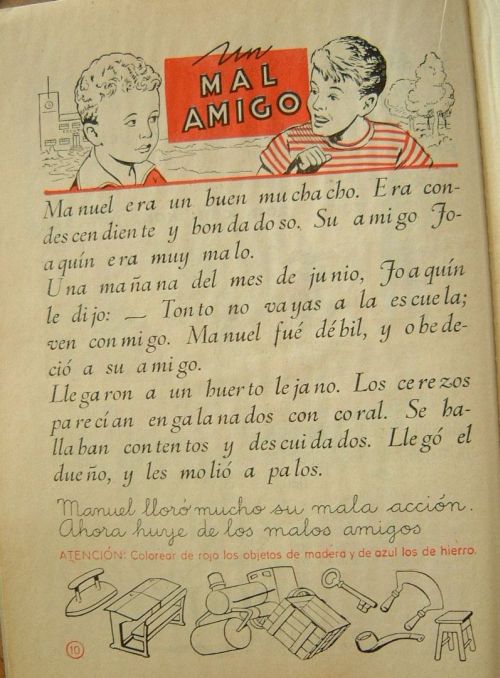 un
MAL
AMIGO
Ma nuel e ra un buen mu cha cho. E ra con-
des cen dien te y bon da do so. Su a mi go Jo-
a quín e ra muy ma lo.
U na ma ña na del mes de ju nio, Jo a quín
le di jo: — Ton to no va yas a la es cue la;
ven con mi go. Ma nuel fué dé bil, y o be de-
ció a su a mi go.
Lle ga ron a un huer to le ja no. Los ce re zos
pa re cí an en ga la na dos con co ral. Se ha-
lla ban con ten tos y des cui da dos. Lle gó el
due ño, y les mo lió a pa los.
Manuel lloró mucho su mala acción.
Ahora huye de los malos amigos
ATENCIÓN: Colorear de rojo los objetos de madera y de azul los de hierro.
10